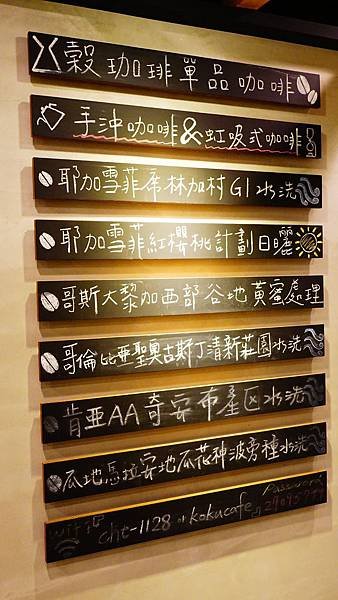 穀珈琲單品咖啡
手沖咖啡&虹吸式咖啡
耶加雪菲席林加村G1水洗
耶加雪菲紅櫻桃計劃日曬
哥斯大黎加西部谷地黃蜜處理
哥倫比亞聖奧古斯丁清新莊園水洗
肯亞AA奇安布產区水洗
瓜地馬拉安地瓜花神波旁種水洗
wifi
cht-1128 or kokucafe
Password